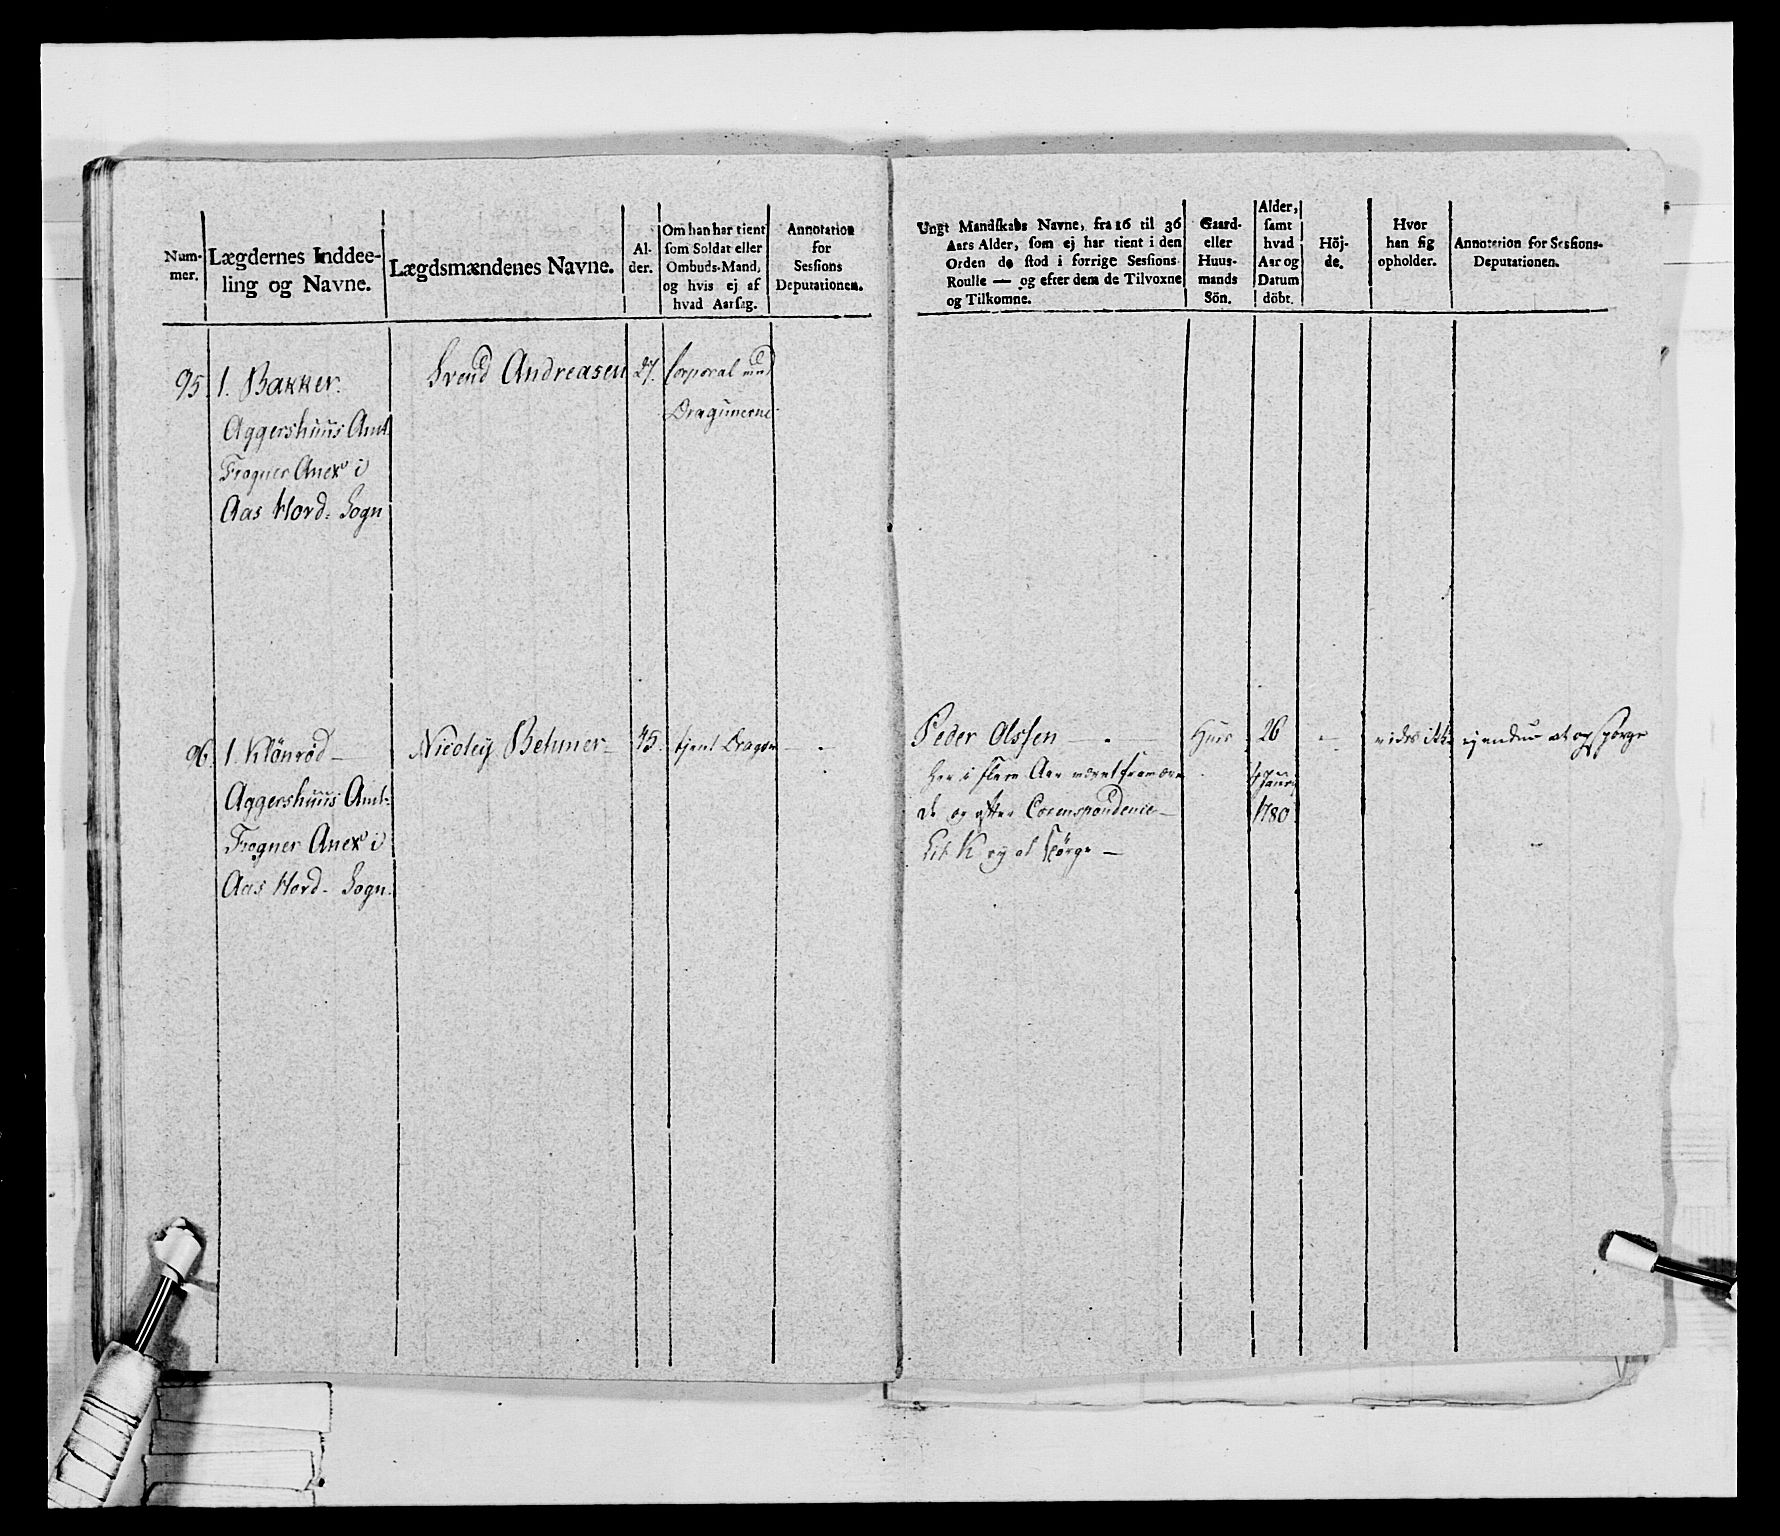 Num-
mer.
Lægdernes Inddee-
ling og Navne.
Lægdsmændenes Navne.
Al-
der.
Om han har tient
som Soldat eller
Ombuds-Mand,
og hvis ej af
hvad Aarsag.
Annotation
for
Sessions
Deputationen.
95. 1. Bakker.
Aggershuus Amt.
Frogner Anex i
Aas Hord. Sogn
Svend Andreasen
27.
Corporal ved
Dragunerne
96. 1. Klönröd
Aggershuus Amt.
Frogner Anex i
Aas Hord. Sogn.
Nicoley Behmer
45.
tjent Dragon
Ungt Mandskabs Navne, fra 16 til 36
Aars Alder, som ej har tient i den
Orden de stod i forrige Sessions
Roulle — og efter dem de Tilvoxne
og Tilkomne.
Gaard-
eller
Huus-
mands
Sön.
Alder,
samt
hvad
Aar og
Datum
döbt.
Höj-
de.
Hvor
han sig
opholder.
Annotation for Sessions-
Deputationen.
Peder Olssen
Huus
26
vides ikke
ej endnu at opspørge
har i flere Aar været
de og efter Correspondence
Lit K ej at spørge
1780